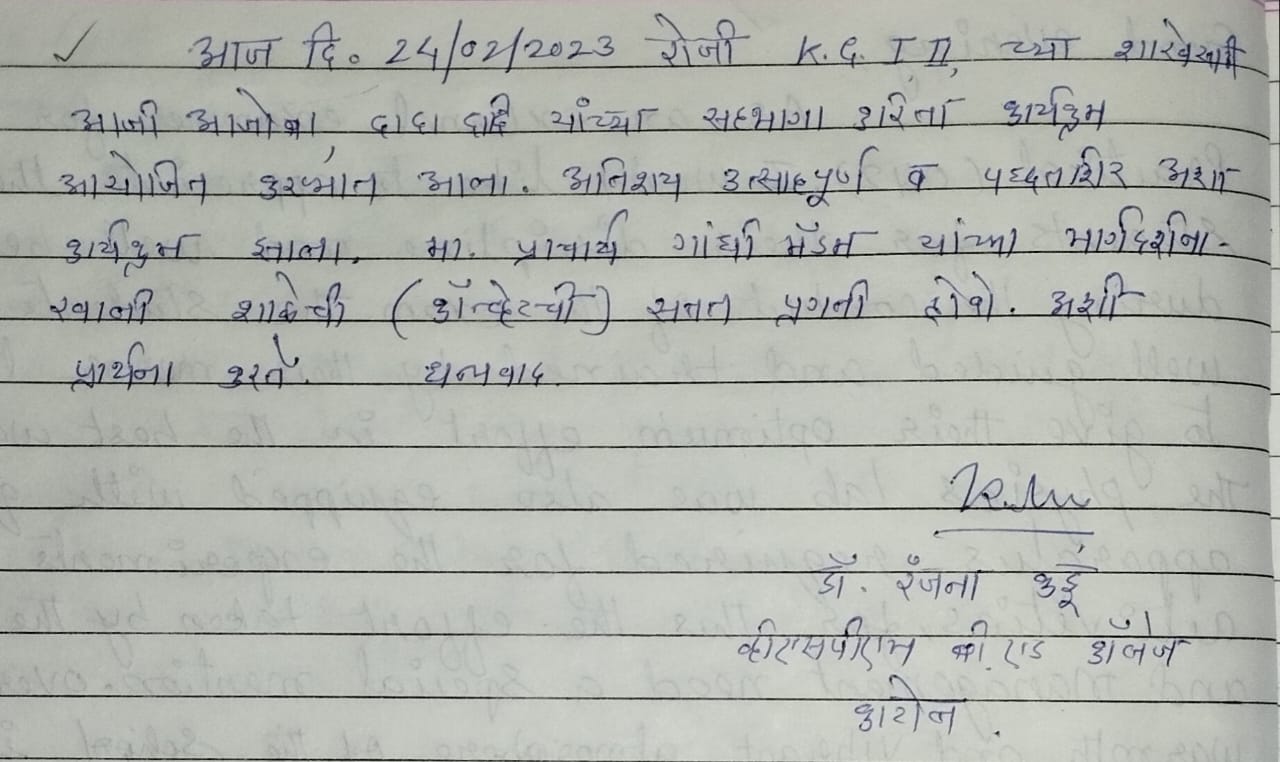 ✓ आज दि. 24/02/2023 रोजी K.G. I, II, च्या शाळेमध्ये
आजी आजोबा, दादा दादी यांच्या सहभागा करिता कार्यक्रम
आयोजित करण्यात आला. अतिशय उत्साहपूर्ण व पध्दतशिर असा
कार्यक्रम झाला. मा. प्राचार्य गांधी मॅडम यांच्या मार्गदर्शना-
खाली शाळेची (कॉन्व्हेंटची) सतत प्रगती होवो. अशी
प्रार्थना करते. धन्यवाद.
डॉ. रंजना कडू
व्हीएसपीएम बी.एड कॉलेज
काटोल.